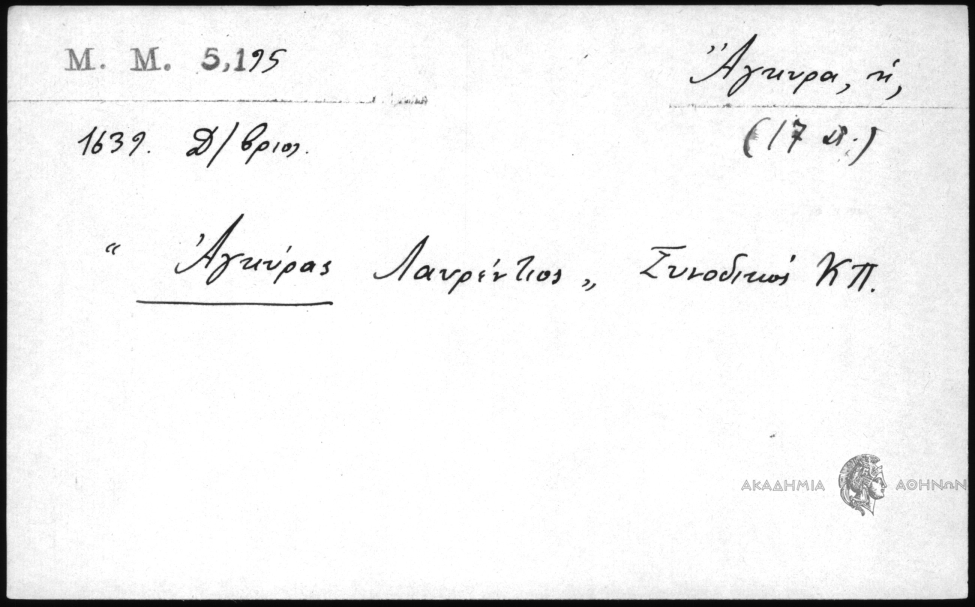 Μ. Μ. 5,195
Ἄγκυρα, ἡ,
1639. Δ/βριος.
(17 αἰ.)
“ Ἀγκύρας Λαυρέντιος „ Συνοδικός ΚΠ.
ΑΚΑΔΗΜΙΑ ΑΘΗΝΩΝ